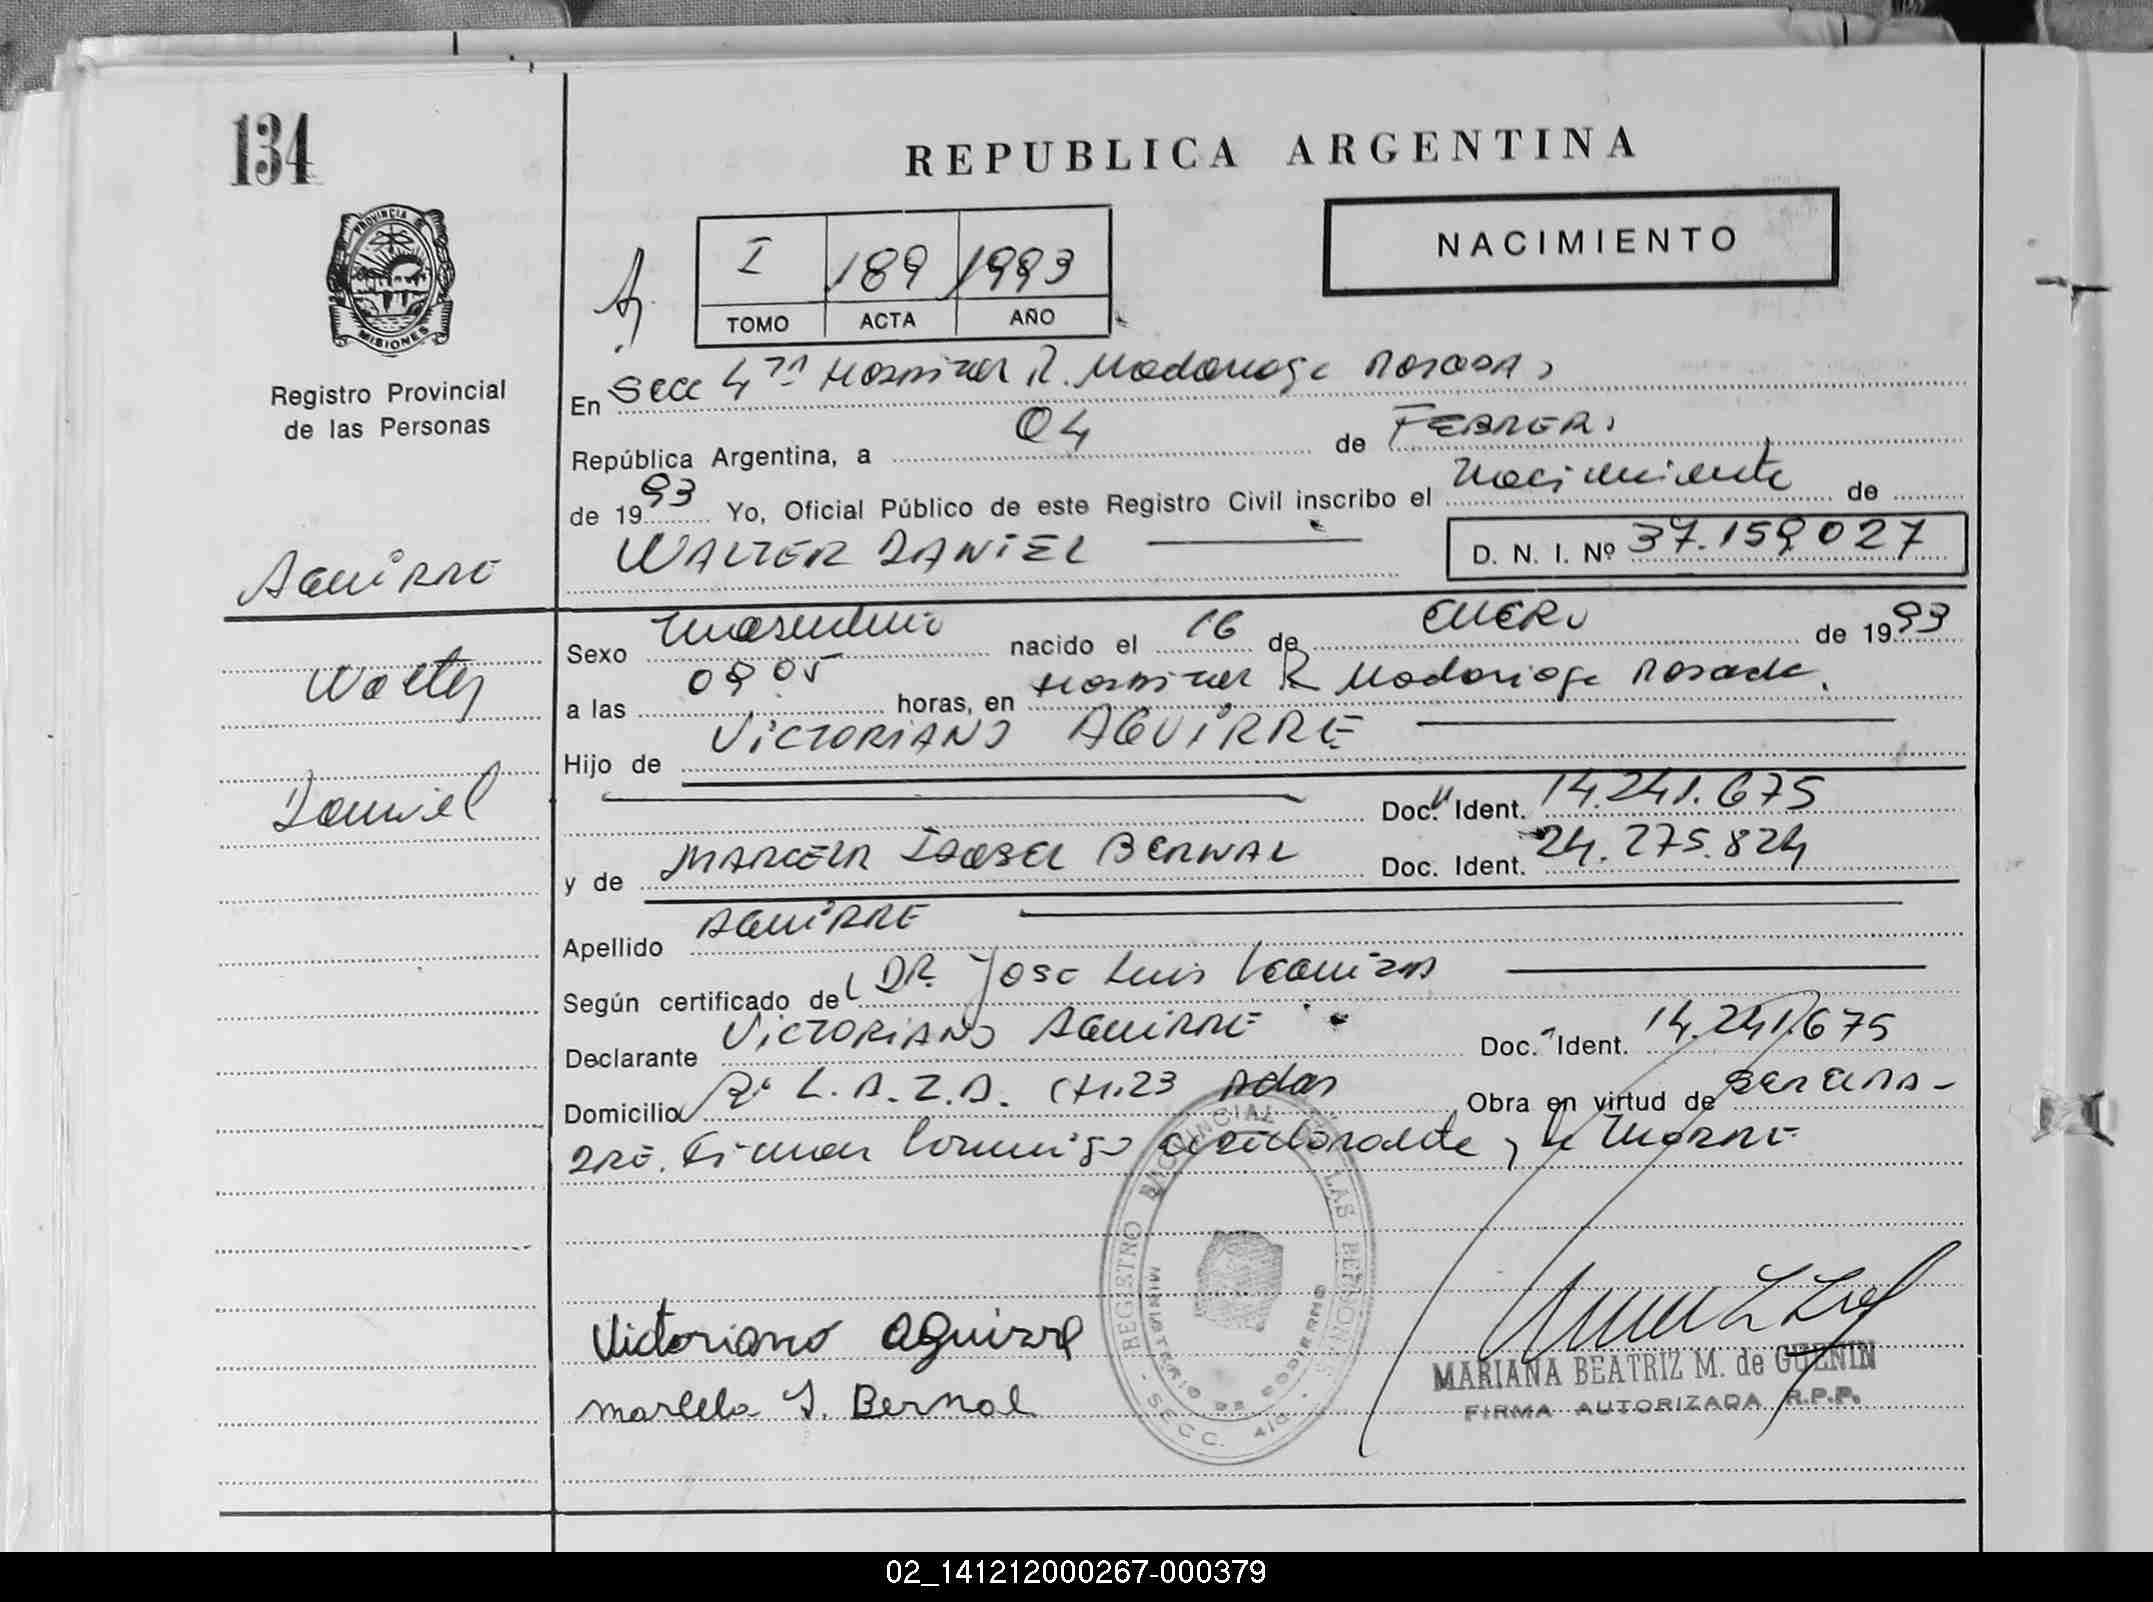 134
REPUBLICA ARGENTINA
NACIMIENTO
I 189 1993
TOMO ACTA AÑO
PROVINCIA DE
MISIONES
Registro Provincial
de las Personas
En Secc 4ta Hospital R. Madariaga Posadas
República Argentina, a 04 de FEBRERO
de 1993 Yo, Oficial Público de este Registro Civil inscribo el Nacimiento de
WALTER DANIEL D. N. I. Nº 37.159.027
Aguirre
Walter
Daniel
Sexo masculino nacido el 16 de ENERO de 1993
a las 09 05 horas, en Hospital R Madariaga Posadas.
Hijo de VICTORIANO AGUIRRE
Doc. Ident. 14.241.675
y de MARCELA ISABEL BERNAL Doc. Ident. 24.275.824
Apellido AGUIRRE
Según certificado del DR. Jose Luis
Declarante VICTORIANO AGUIRRE Doc. Ident. 14.241.675
Domicilio CH.23 Pdas Obra en virtud de
Firman Conmigo el declarante y la MADRE
REGISTRO PROVINCIAL DE LAS PERSONAS
MINISTERIO DE GOBIERNO
SECC. 4ta
Victoriano Aguirre
Marcela I. Bernal
MARIANA BEATRIZ M. de GUENIN
FIRMA AUTORIZADA R.P.P.
02_141212000267-000379